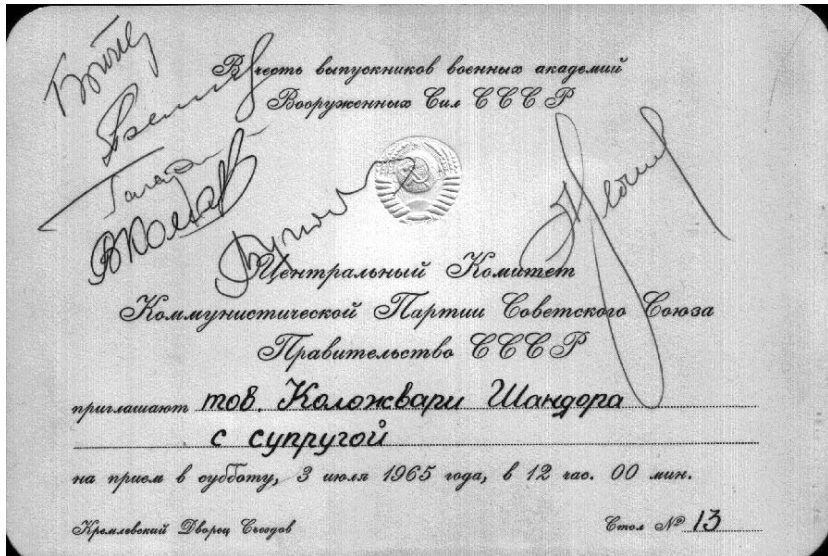 В честь выпускников военных академий
Вооруженных Сил СССР
Центральный Комитет
Коммунистической Партии Советского Союза
Правительство СССР
приглашают тов. Коложвари Шандора
с супругой
на прием в субботу, 3 июля 1965 года, в 12 час. 00 мин.
Кремлевский Дворец Съездов
Стол № 13